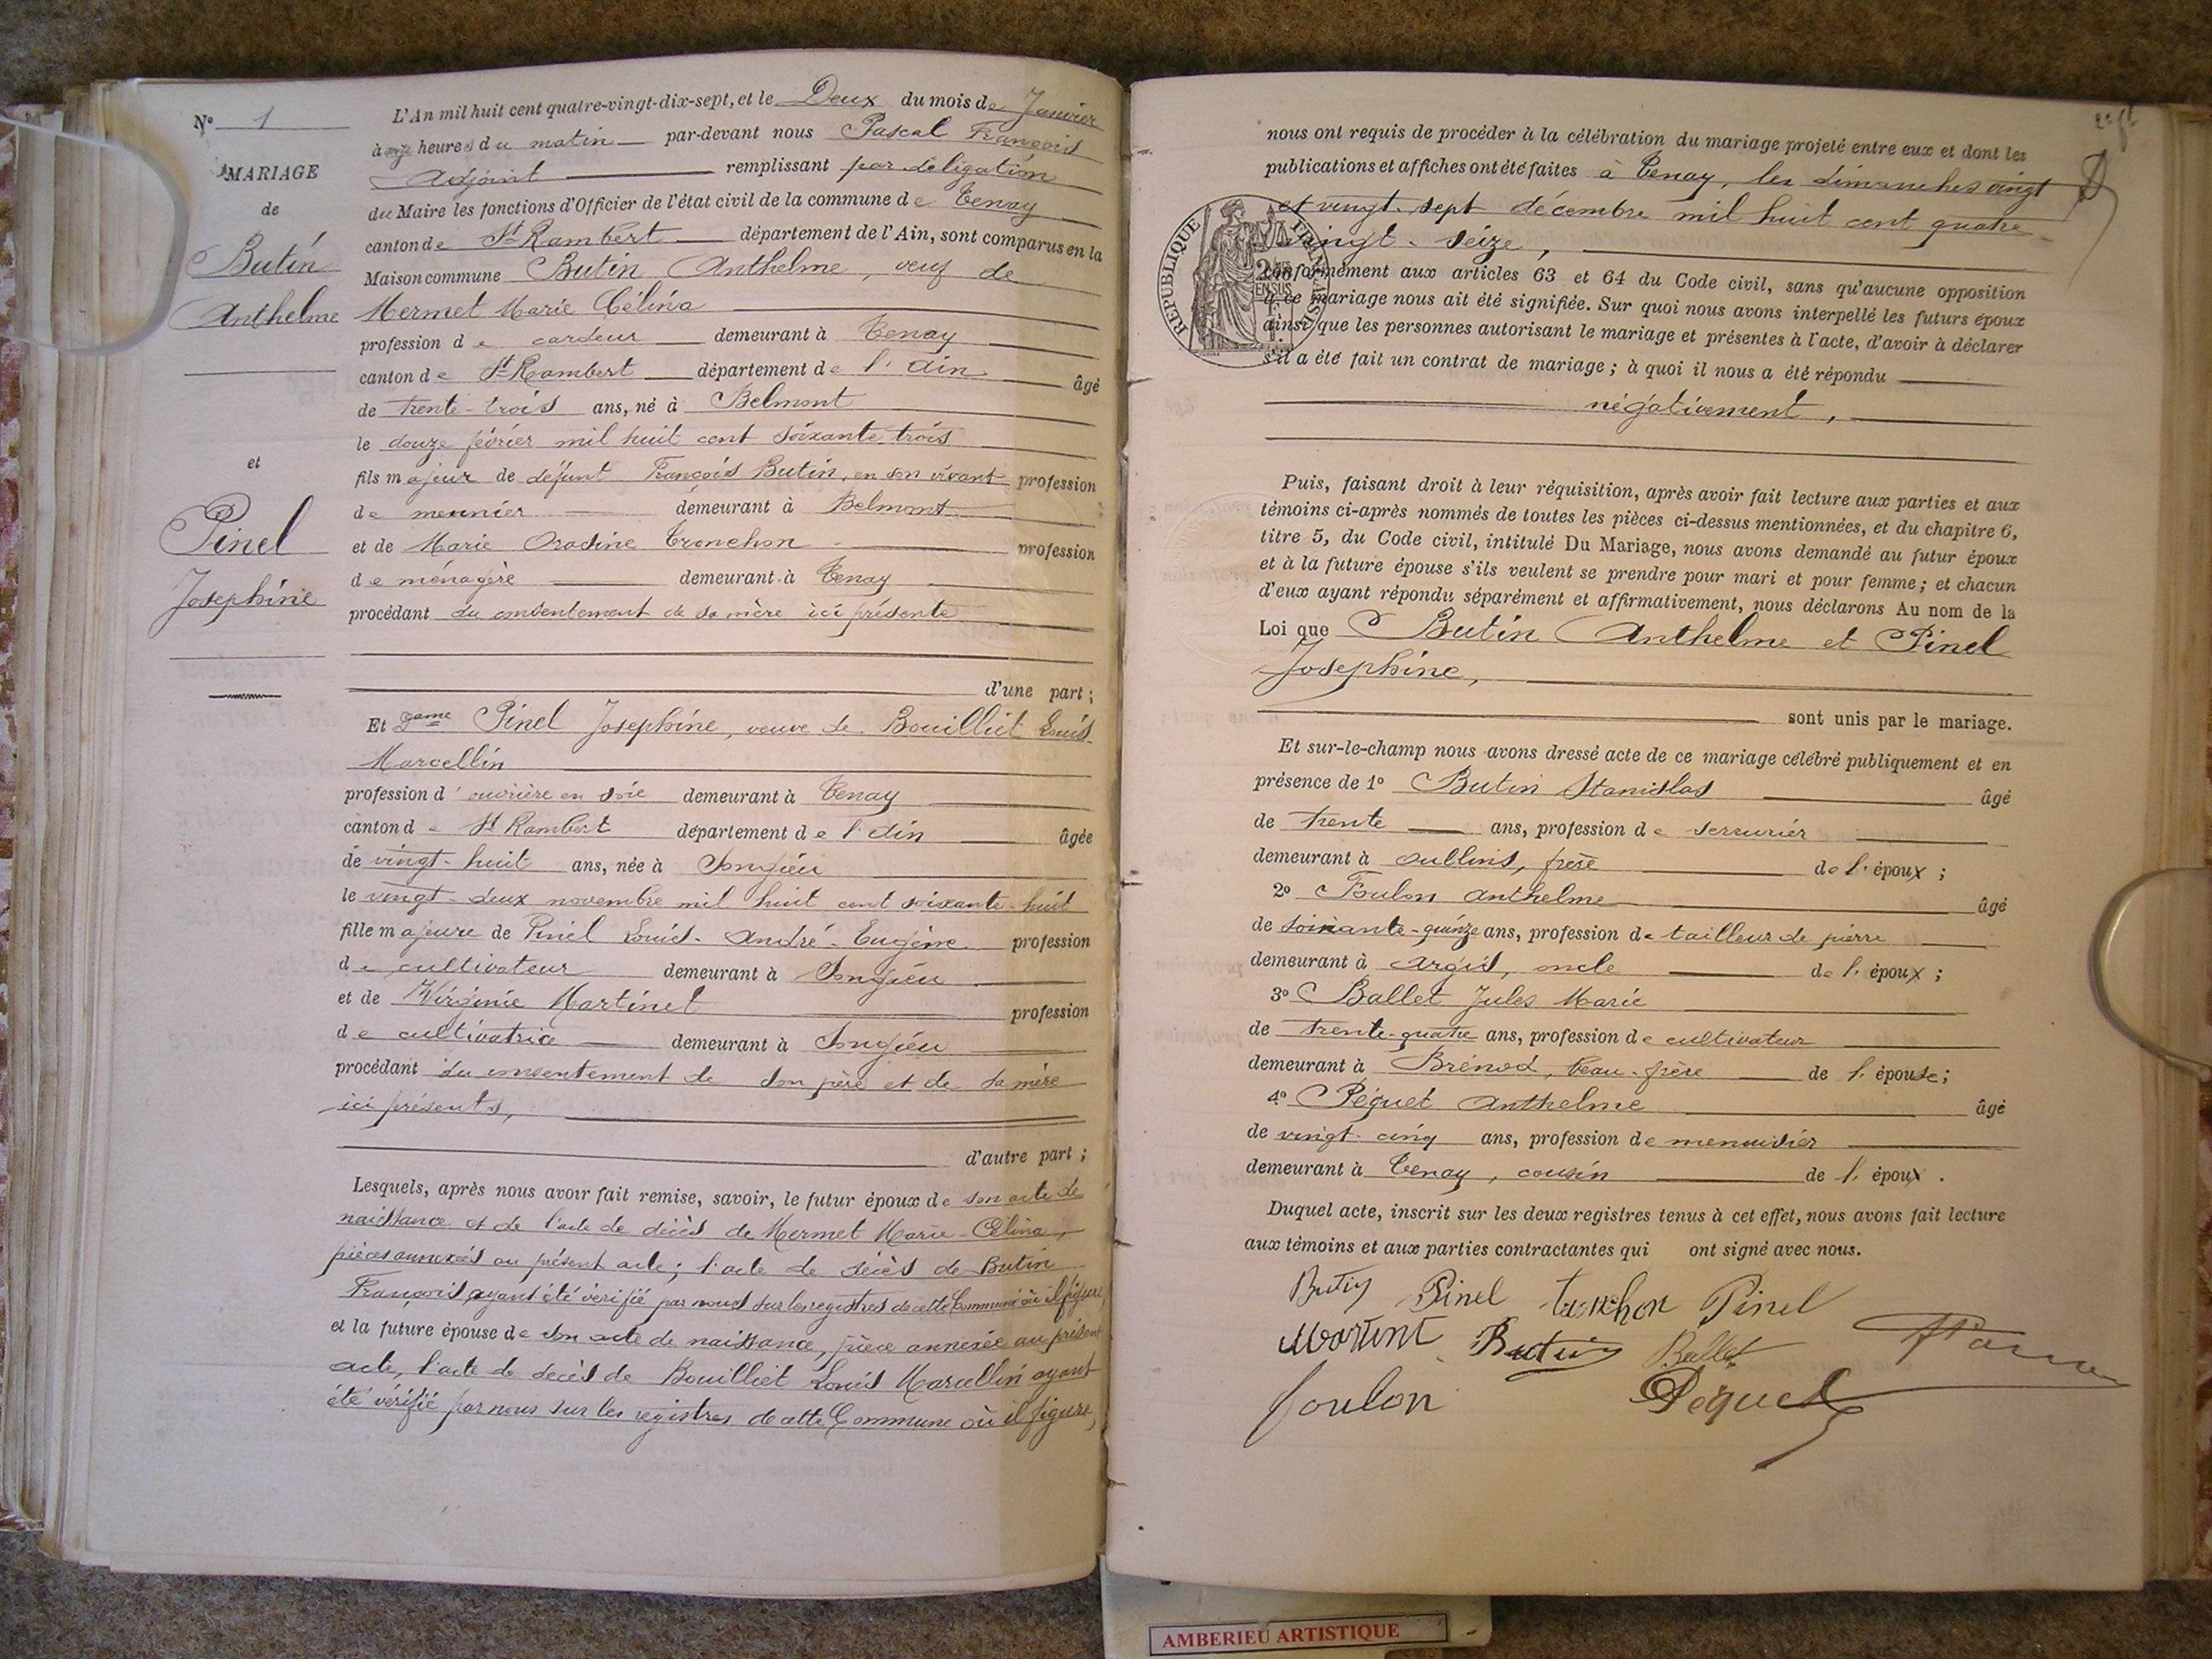 N° 1
MARIAGE
de
Butin
Anthelme
et
Pinel
Joséphine
L'An mil huit cent quatre-vingt-dix-sept, et le Deux du mois de Janvier
à onze heures du matin par-devant nous Pascal François
Adjoint remplissant par délégation
du Maire les fonctions d'Officier de l'état civil de la commune de Tenay
canton de St Rambert département de l'Ain, sont comparus en la
Maison commune Butin Anthelme, veuf de
Mermet Marie Célina
profession de cardeur demeurant à Tenay
canton de St Rambert département de l'Ain âgé
de trente-trois ans, né à Belmont
le douze février mil huit cent soixante trois
fils majeur de défunt François Butin, en son vivant profession
de meunier demeurant à Belmont
et de Marie Tronchon profession
de ménagère demeurant à Tenay
procédant du consentement de sa mère ici présente
d'une part ;
Et Dame Pinel Joséphine, veuve de Bouilliet Louis
Marcellin
profession d'ouvrière en soie demeurant à Tenay
canton de St Rambert département de l'Ain âgée
de vingt-huit ans, née à Songieu
le vingt-deux novembre mil huit cent soixante-huit
fille majeure de Pinel Louis-André-Eugène profession
de cultivateur demeurant à Songieu
et de Virginie Martinet profession
de cultivatrice demeurant à Songieu
procédant du consentement de son père et de sa mère
ici présents,
d'autre part ;
Lesquels, après nous avoir fait remise, savoir, le futur époux de son acte de
naissance et de l'acte de décès de Mermet Marie-Célina,
pièces annexées au présent acte ; l'acte de décès de Butin
François, ayant été vérifié par nous sur les registres de cette Commune où il figure,
et la future épouse de son acte de naissance, pièce annexée au présent
acte, l'acte de décès de Bouilliet Louis Marcellin ayant
été vérifié par nous sur les registres de cette Commune où il figure,
nous ont requis de procéder à la célébration du mariage projeté entre eux et dont les
publications et affiches ont été faites à Tenay, les dimanches vingt
et vingt-sept décembre mil huit cent quatre-
vingt-seize,
conformément aux articles 63 et 64 du Code civil, sans qu'aucune opposition
à ce mariage nous ait été signifiée. Sur quoi nous avons interpellé les futurs époux
ainsi que les personnes autorisant le mariage et présentes à l'acte, d'avoir à déclarer
s'il a été fait un contrat de mariage ; à quoi il nous a été répondu
négativement,
RÉPUBLIQUE
Puis, faisant droit à leur réquisition, après avoir fait lecture aux parties et aux
témoins ci-après nommés de toutes les pièces ci-dessus mentionnées, et du chapitre 6,
titre 5, du Code civil, intitulé Du Mariage, nous avons demandé au futur époux
et à la future épouse s'ils veulent se prendre pour mari et pour femme ; et chacun
d'eux ayant répondu séparément et affirmativement, nous déclarons Au nom de la
Loi que Butin Anthelme et Pinel
Joséphine,
sont unis par le mariage.
Et sur-le-champ nous avons dressé acte de ce mariage célébré publiquement et en
présence de 1° Butin Stanislas âgé
de trente ans, profession de serrurier
demeurant à Oullins, frère de l'époux ;
2° Foulon Anthelme âgé
de soixante-quinze ans, profession de tailleur de pierre
demeurant à Argis, oncle de l'époux ;
3° Ballet Jules Marie
de trente-quatre ans, profession de cultivateur
demeurant à Brénod, beau-frère de l'épouse ;
4° Péguet Anthelme âgé
de vingt-cinq ans, profession de menuisier
demeurant à Tenay, cousin de l'époux.
Duquel acte, inscrit sur les deux registres tenus à cet effet, nous avons fait lecture
aux témoins et aux parties contractantes qui ont signé avec nous.
Butin Pinel tronchon Pinel
Butin Ballet
foulon Péguet
AMBERIEU ARTISTIQUE